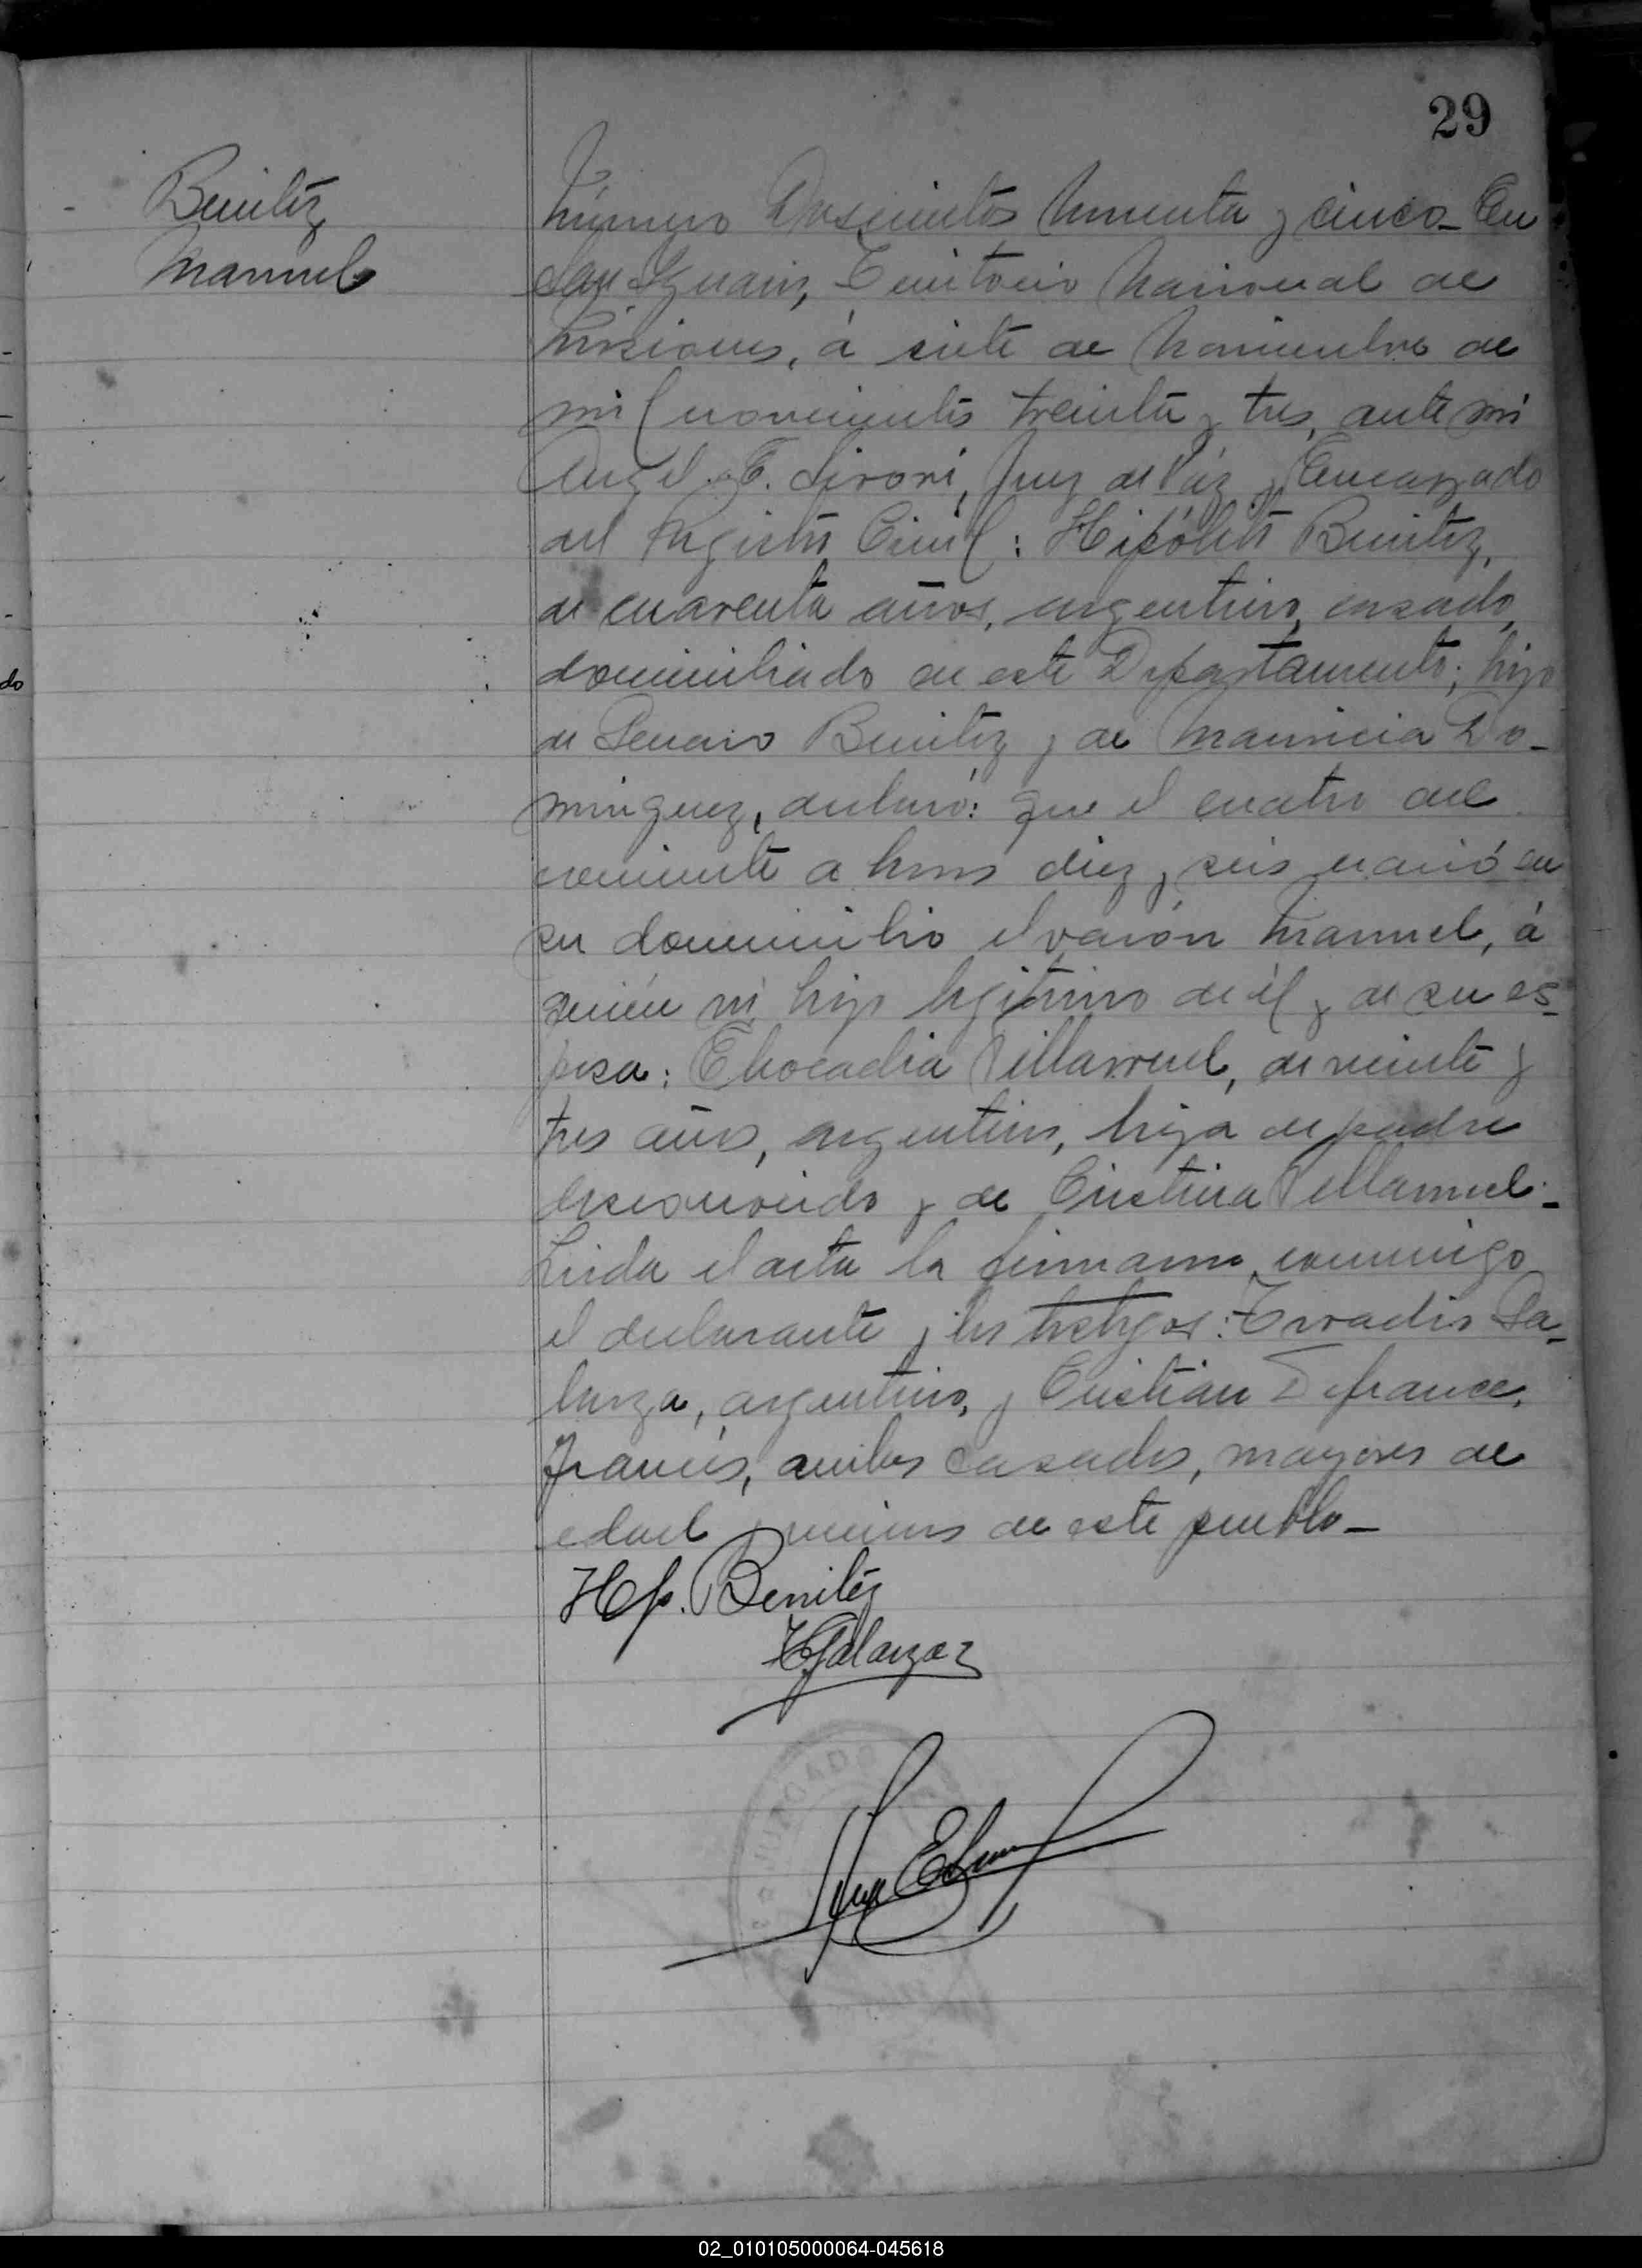 29
Benitez
Manuel
Número Doscientos Noventa y cinco_ En
San Ignacio, Territorio Nacional de
Misiones, á siete de Noviembre de
mil novecientos treinta y tres, ante mi
Angel E. Sironi, Juez de Páz y Encargado
del Registro Civil: Hipólito Benitez,
de cuarenta años, argentino, casado,
domiciliado en este Departamento; hijo
de Genaro Benitez y de Mauricia Do_
minguez, declaró: que el cuatro del
corriente a horas diez y seis nació en
su domicilio el varón Manuel, á
quién ví, hijo legítimo de él y de su es_
posa: Eleocadia Villarruel, de veinte y
tres años, argentina, hija de padre
desconocido y de Cristina Villarruel._
Leida el acta la firmaron conmigo
el declarante y los testigos: Ga_
larza, argentino, y Cristian Defrance,
francés, ambos casados, mayores de
edad y vecinos de este pueblo_
Hip. Benitez
Galarza
JUZGADO
do
02_010105000064-045618